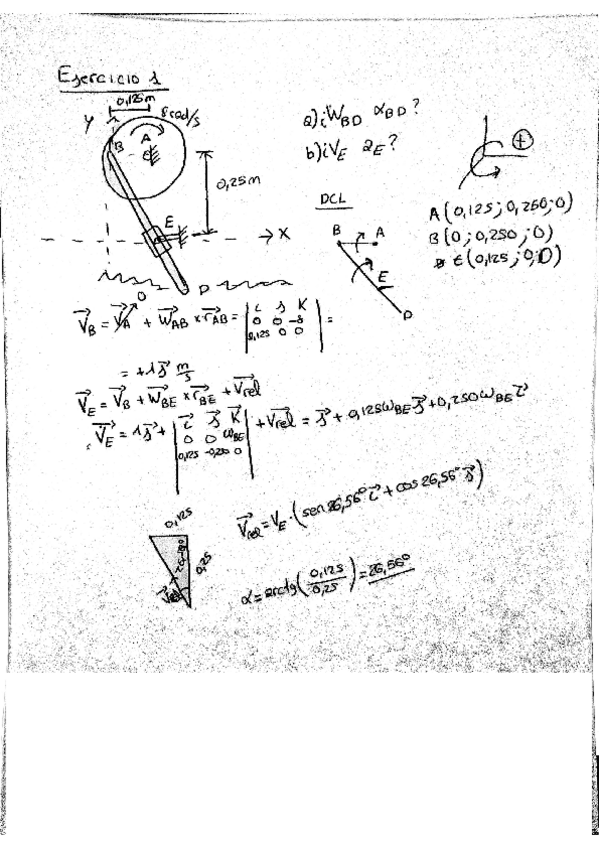 Ejercicio 1
0,125m
Y
8 rad/s
B
A
0,25m
E
X
D
a) ¿ WBD αBD ?
b) ¿ VE aE ?
DCL
B
A
E
D
+
A (0,125 ; 0,250 ; 0)
B (0 ; 0,250 ; 0)
E (0,125 ; 0 ; 0)
0
VB = VA + WAB × rAB = | i j k
0 0 -8
0,125 0 0 | =
= +1 j m/s
VE = VB + WBE × rBE + Vrel
VE = 1 j + | i j k
0 0 WBE
0,125 -0,250 0 | + Vrel = j + 0,125 WBE j + 0,250 WBE i
Vrel = VE · (sen 26,56° i + cos 26,56° j)
0,125
0,25
Vrel
α = arctg (0,125 / 0,25) = 26,56°